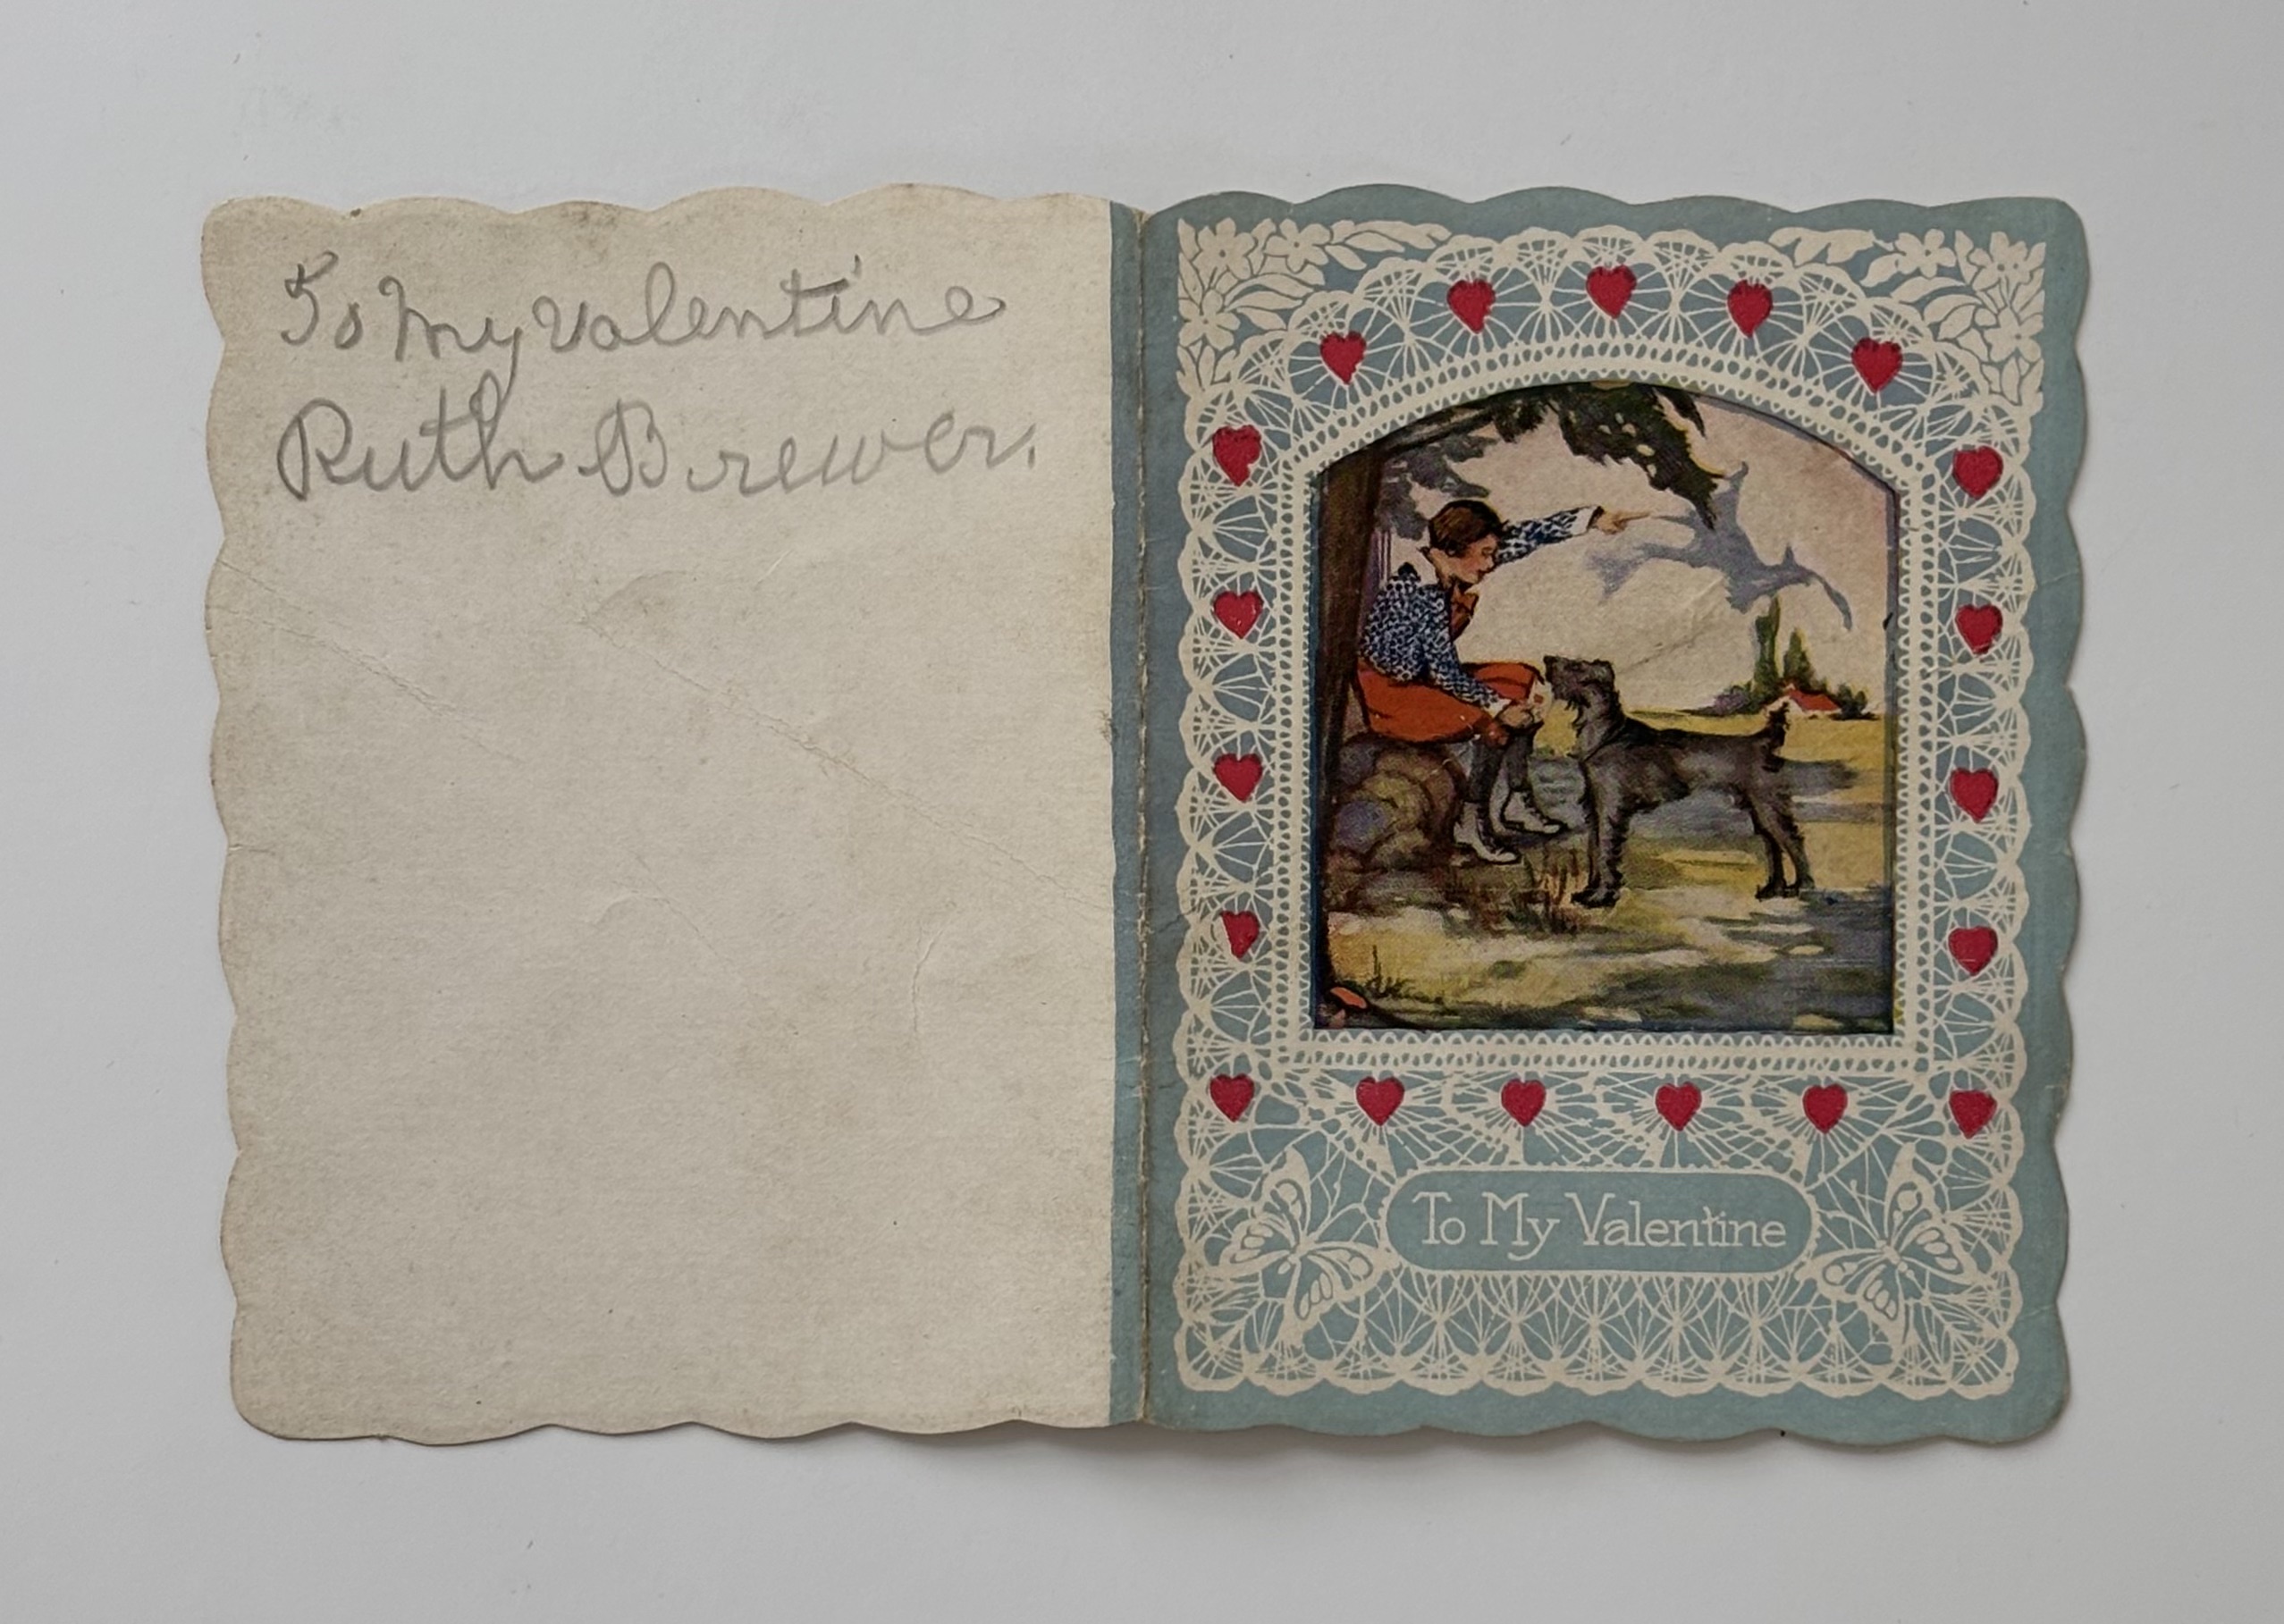 To My Valentine
Ruth Brewer.
To My Valentine